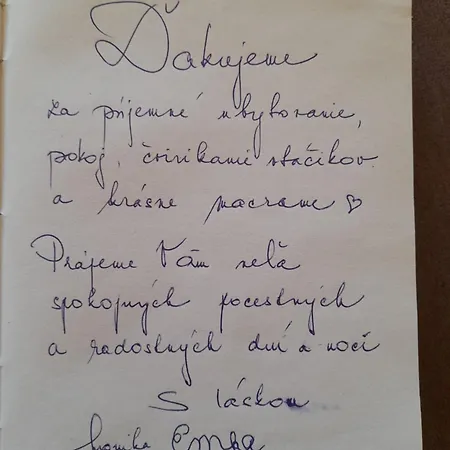 Ďakujeme
za príjemné ubytovanie,
pokoj, čvirikami vtáčikov
a krásne macrame ♡
Prajeme Vám veľa
spokojných pocestných
a radostných dní a nocí
S láskou
Monika Emma